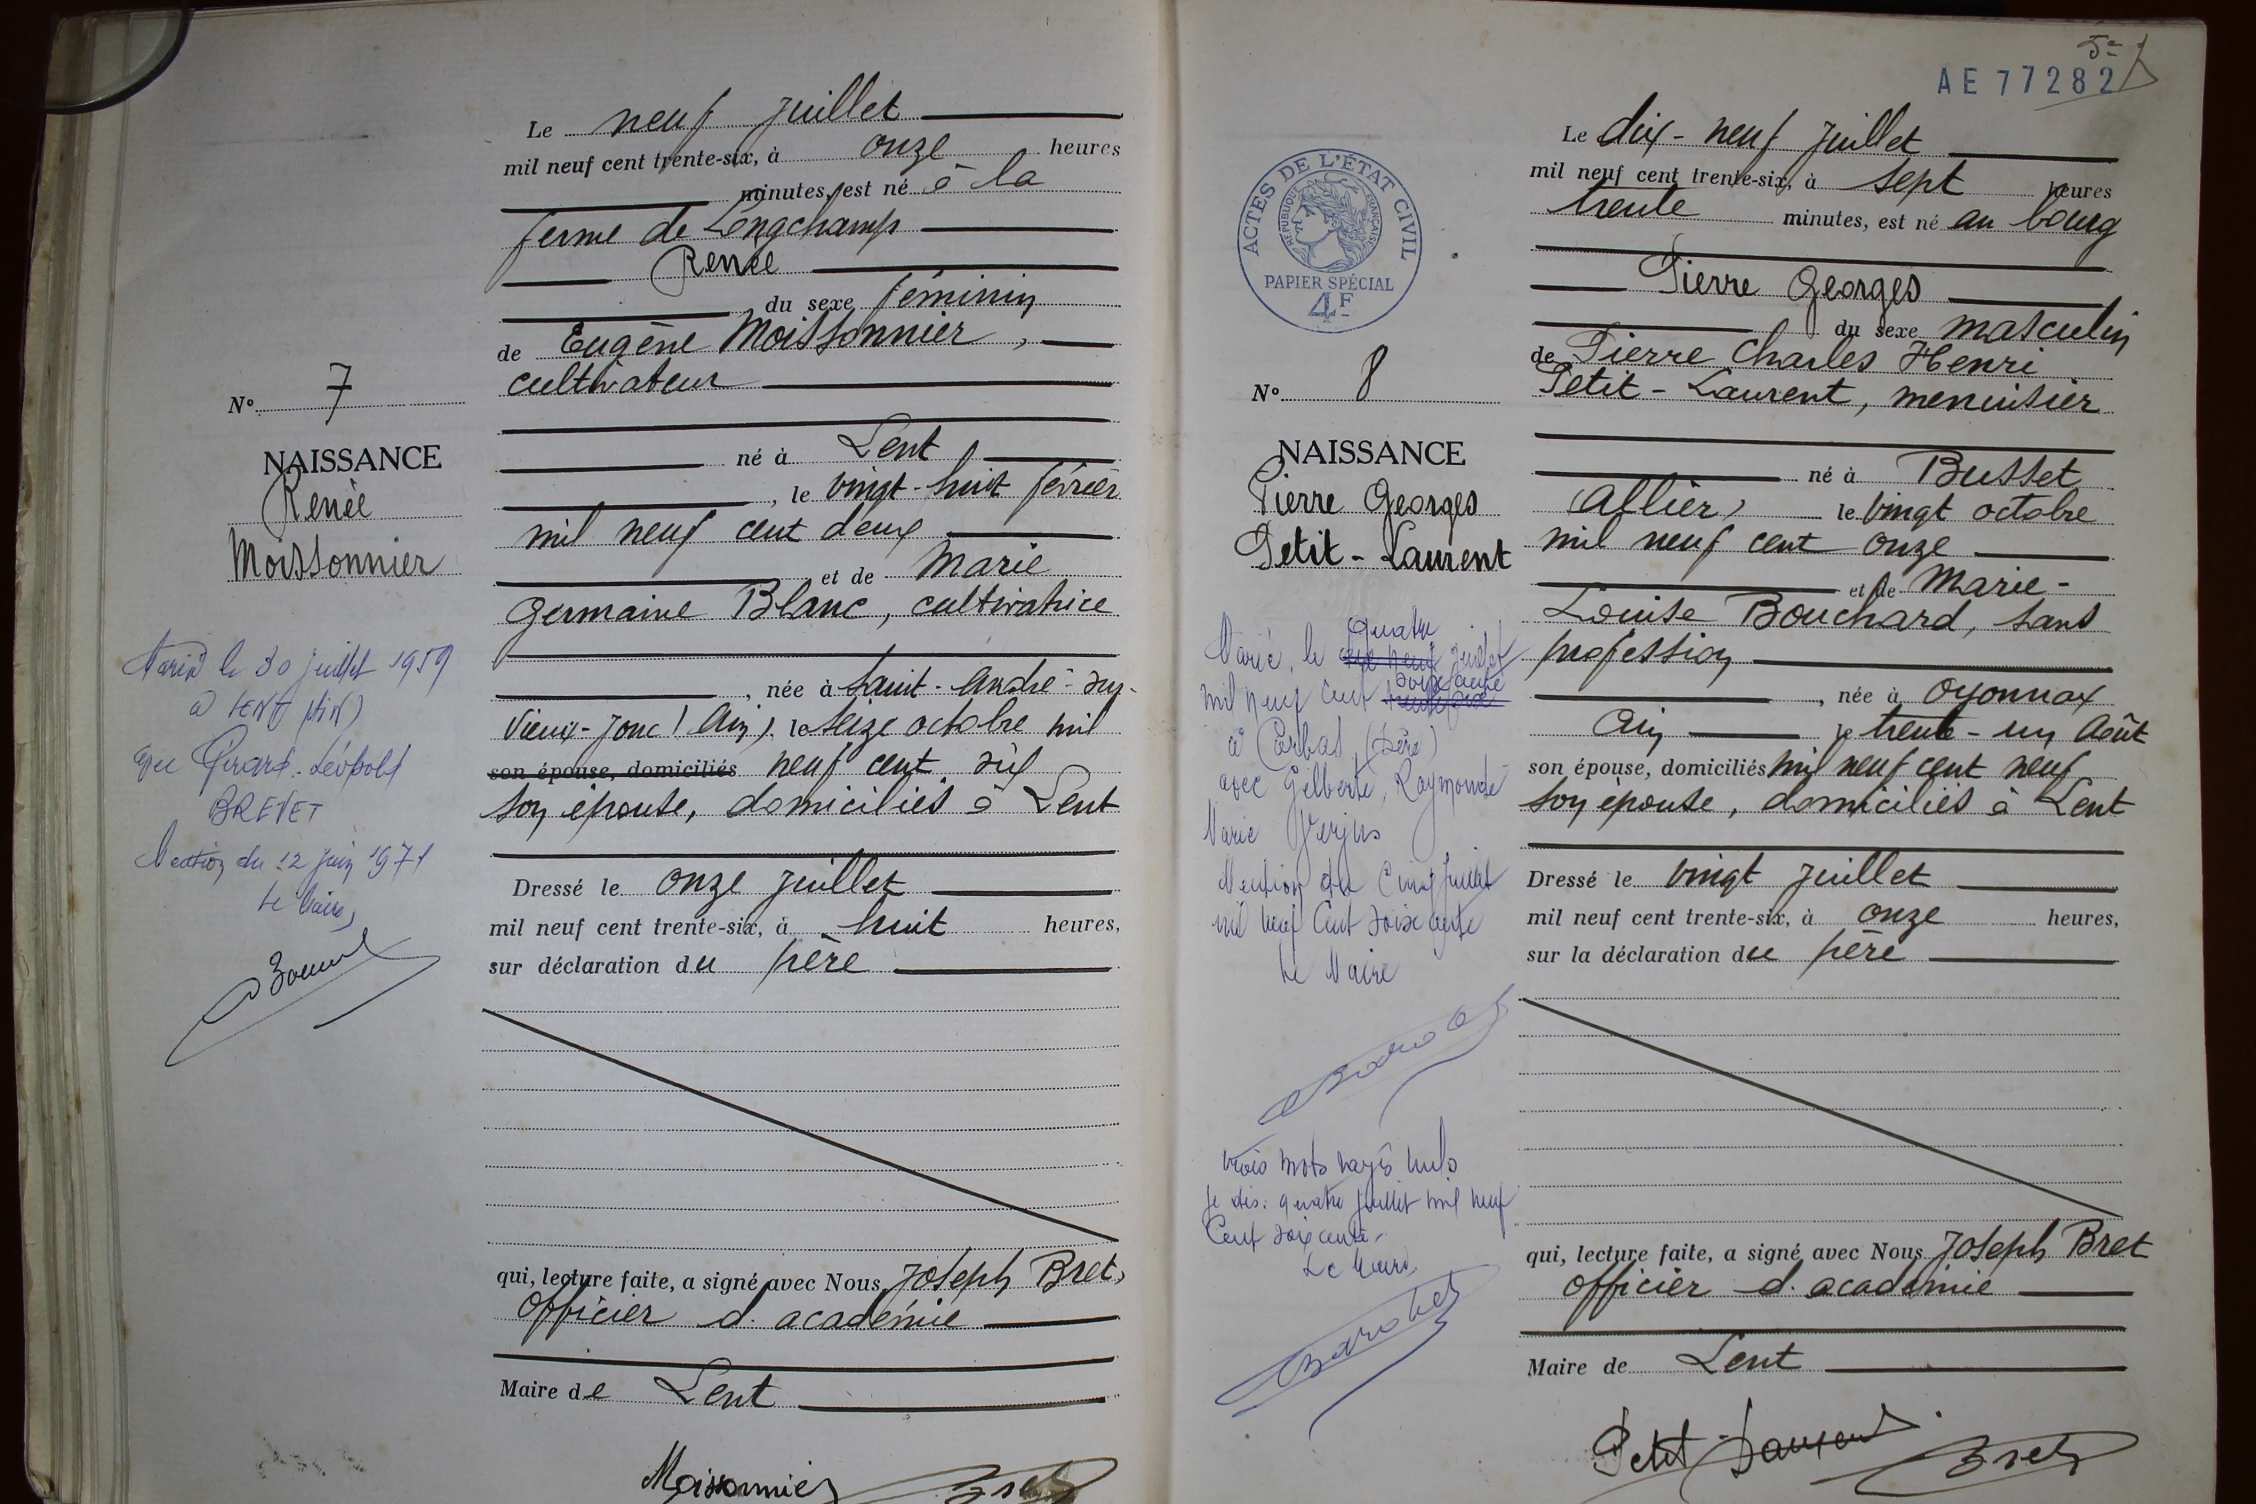 Le neuf juillet
mil neuf cent trente-six, à onze heures
minutes, est né à la
ferme de Longchamp
Renée
du sexe féminin
de Eugène Moissonnier,
cultivateur
né à Lent
, le vingt-huit février
mil neuf cent deux
et de Marie
Germaine Blanc, cultivatrice
, née à Saint-André-sur-
Vieux-Jonc (Ain), le seize octobre mil
son épouse, domiciliés neuf cent dix
son épouse, domiciliés à Lent
Dressé le onze juillet
mil neuf cent trente-six, à huit heures,
sur déclaration du père
qui, lecture faite, a signé avec Nous, Joseph Bret,
officier d'académie
Maire de Lent
Moissonnier Bret
N° 7
NAISSANCE
Renée
Moissonnier
Marié le 30 juillet 1959
à LENT (Ain)
avec Girard Léopold
BREVET
Mention du 12 juin 1971
Le Maire,
5e
AE 77282
ACTES DE L'ÉTAT CIVIL
RÉPUBLIQUE FRANÇAISE
PAPIER SPÉCIAL
4F
N° 8
NAISSANCE
Pierre Georges
Petit-Laurent
quatre
Marié, le dix neuf juillet
soixante
mil neuf cent trente six
à Corbas (Isère)
avec Gilberte, Raymonde
Marie Verjus
Mention du Cinq juillet
mil neuf Cent soixante
Le Maire
trois mots rayés nuls
je dis: quatre juillet mil neuf
Cent soixante.
Le Maire
Le dix-neuf juillet
mil neuf cent trente-six, à sept heures
trente minutes, est né au bourg
Pierre Georges
du sexe masculin
de Pierre Charles Henri
Petit-Laurent, menuisier
né à Busset
(Allier) le vingt octobre
mil neuf cent onze
et de Marie-
Louise Bouchard, sans
profession
, née à Oyonnax
Ain le trente-un Août
son épouse, domiciliés mil neuf cent neuf
son épouse, domiciliés à Lent
Dressé le vingt juillet
mil neuf cent trente-six, à onze heures,
sur la déclaration du père
qui, lecture faite, a signé avec Nous Joseph Bret
officier d'académie
Maire de Lent
Petit Laurent Bret